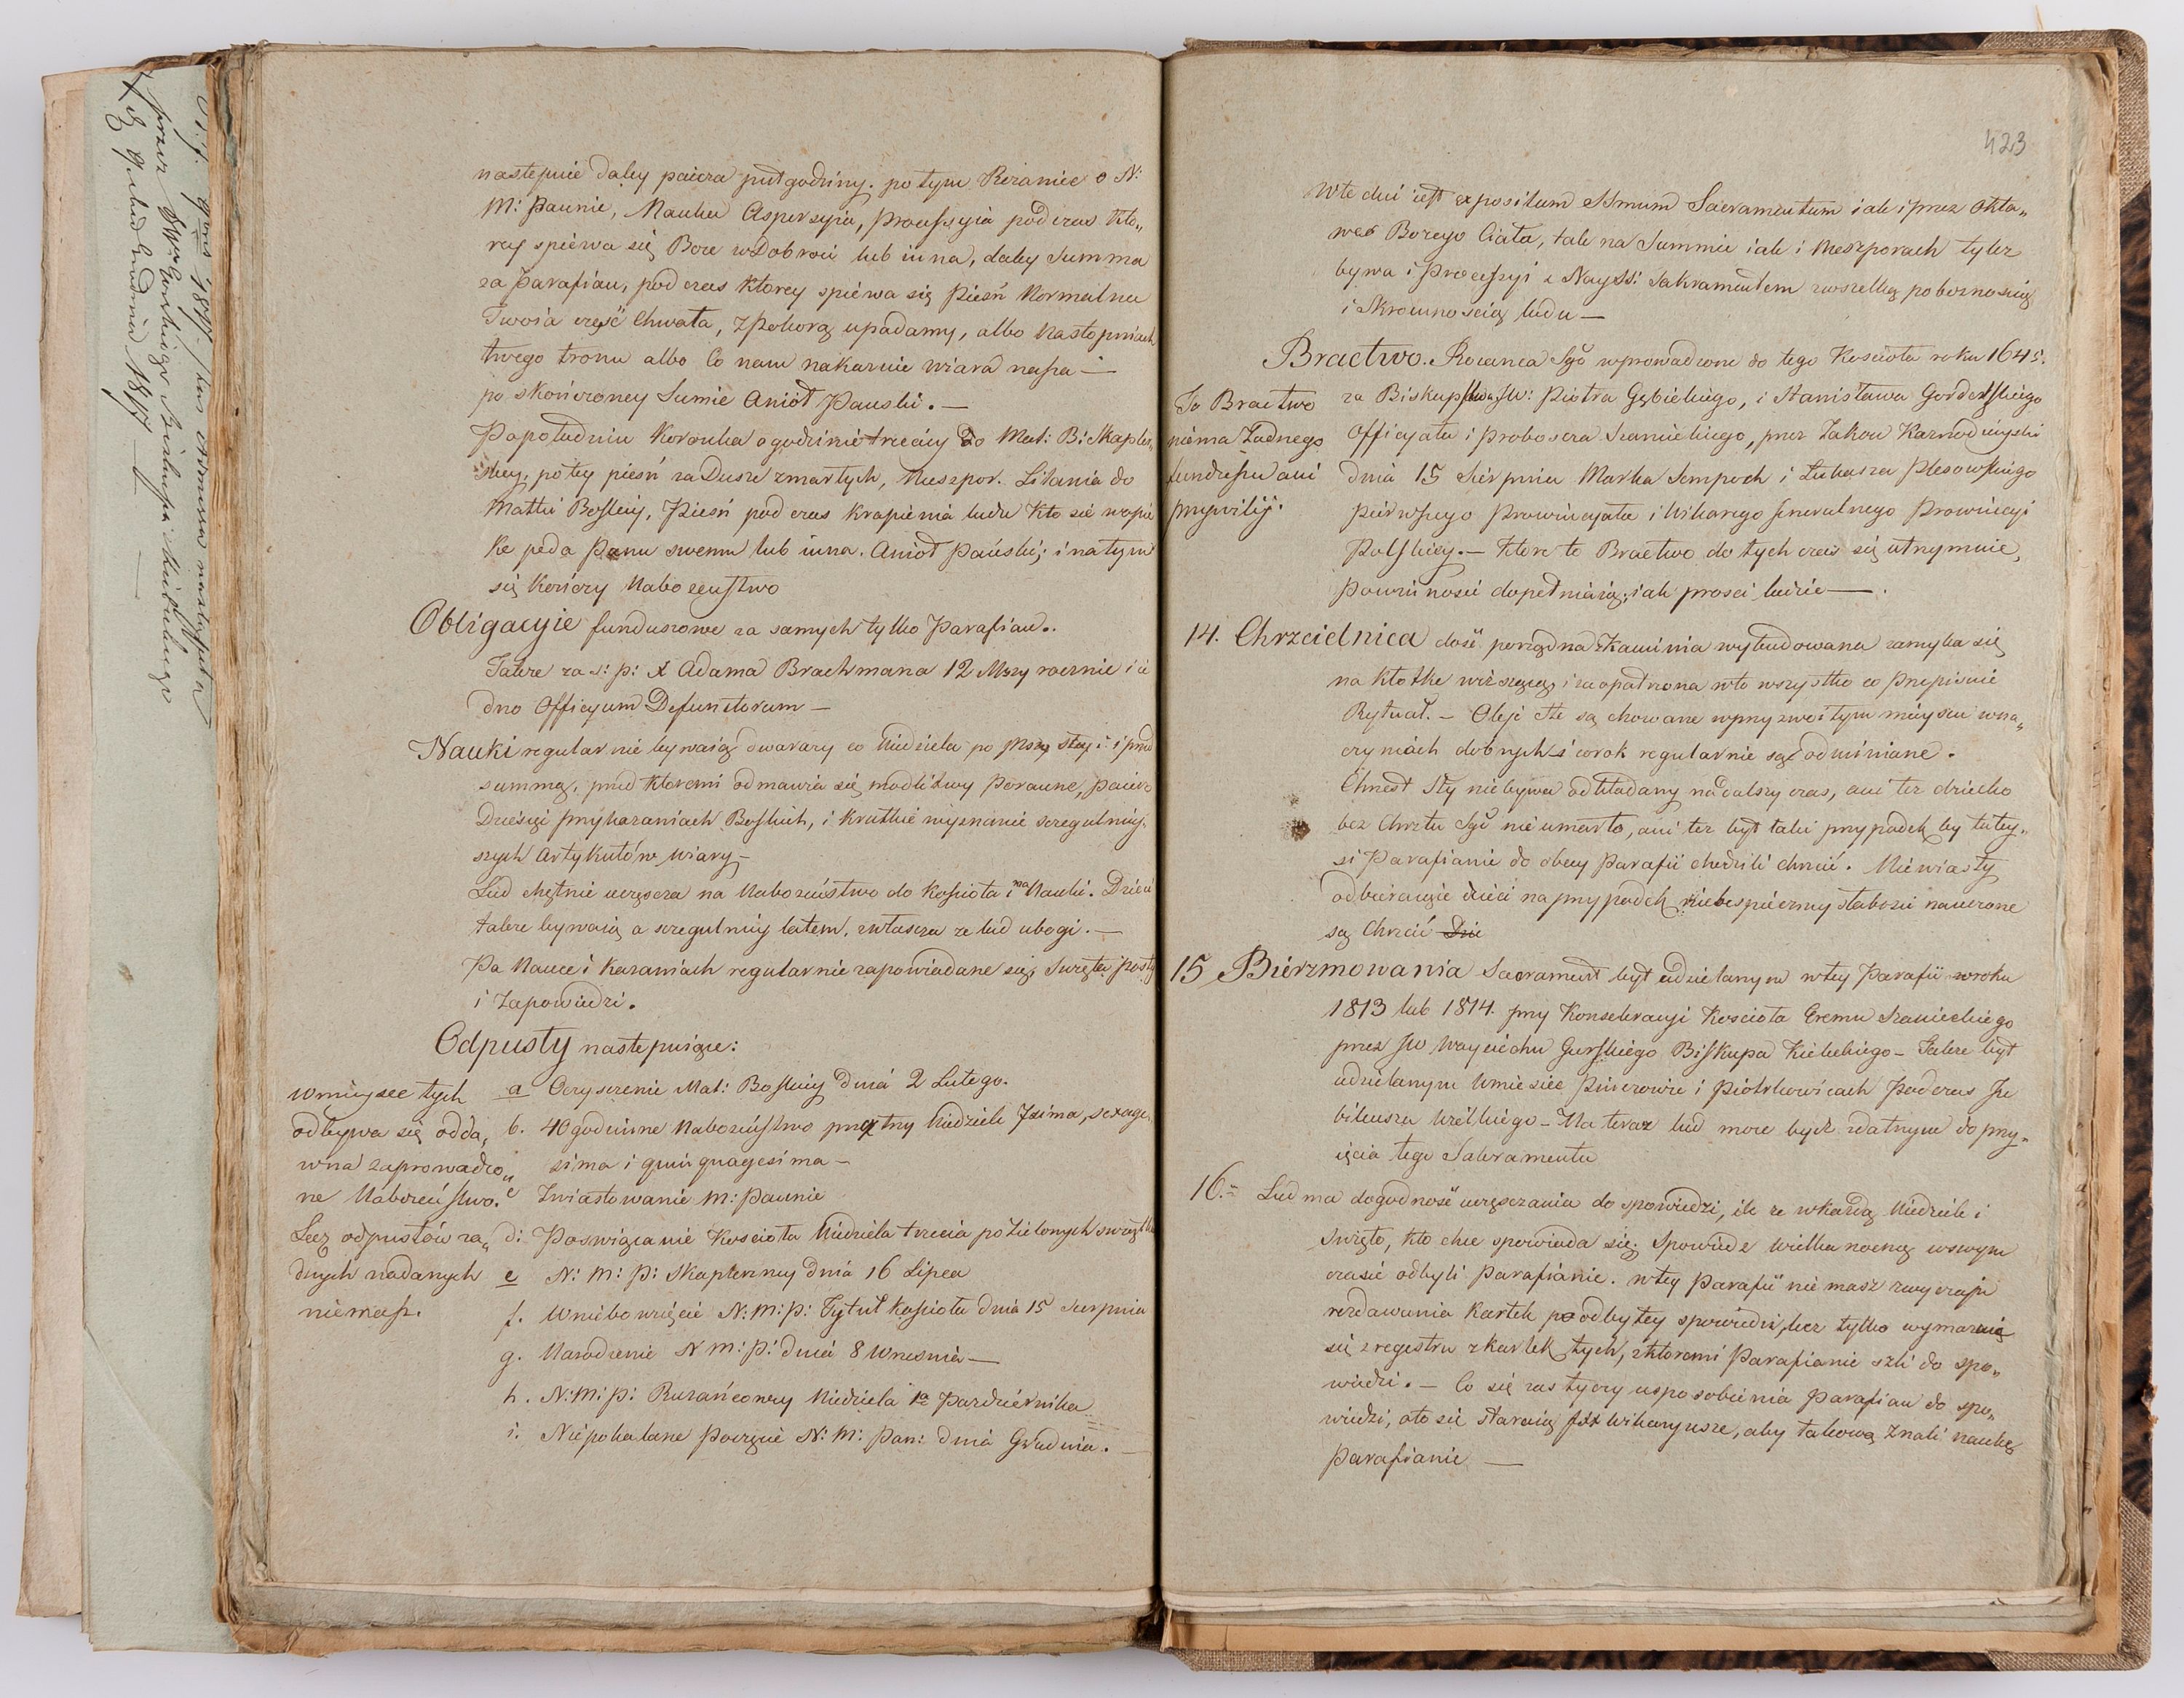 nastempnie daley paierza pułgodziny. potym Rozaniec o N:
M: Pannie, Nauka Aspersyia, Processyia pod czas kto„
rey spiewa się Boze w Dobroci lub inna, daley Summa
za Parafian, pod czas ktorey spiewa się Pieśń Normalna
Twoia cześć Chwała, z Pokorą upadamy, albo Na stopniach
twego tronu albo Co nam nakazuie wiara nasza —
po skończoney Sumie Anioł Pański. —
Popołudniu Koronka o godzinie trzeciey do Mat: B: Skapler„
zney, po tey pieśń za Dusze zmarłych, Nieszpor. Litania do
Matki Boskiey, Pieśń pod czas krapienia ludu Kto się w opie
kę poda Panu swemu lub inna. Anioł Pański; i na tym
się kończy Nabozeństwo
Obligacyie funduszowe za samych tylko Parafian..
Takze za s: p: X Adama Brachmana 12 Mszy rocznie i ie
dno Officyum Defunctorum —
Nauki regularnie bywaią dwa razy co Niedziela po Mszy stey i przed
summą, przed ktoremi odmawia się modlitwy Poranne, Pacierz
Dziesięć przykazaniach Boskich, i krutkie wyznanie szczegulniey„
szych Artykułów wiary —
Lud chętnie uczęscza na Nabozeństwo do Kościoła i na Nauki. Dzieci
takze bywaią a szczegulniey latem, zwłascza ze lud ubogi. —
Po Nauce i Kazaniach regularnie zapowiadane są, Swięta, posty
i Zapowiedzi.
Odpusty nastempuiące:
w mieysce tych
odbywa się odda„
wna zaprowadzo„
ne Nabozeństwo.
Lecz odpustów za„
dnych nadanych
niemasz.
a Oczyszczenie Mat: Boskiey dnia 2 Lutego.
b. 40 godzinne Nabozeństwo przez trzy Niedziele 7sima, sexage
sima i quinquagesima —
c Zwiastowanie M: Pannie
d: Poswięcanie Koscioła Niedziela trzecia po Zielonych swiątkach
e N: M: P: Skaplerzney dnia 16 Lipca
f. Wniebowzięcie N: M: P: Tytuł Koscioła dnia 15 Sierpnia
g. Narodzenie N M: P: dnia 8 Wrzesnia —
h. N: M: P: Rozańcowey Niedziela 1a Pazdziernika
i. Niepokalane Poczęcie N: M: Pan: dnia Grudnia. —
423
W te dni iest expositum SSmum Sacramentum iak i przez Okta„
wę Bozego Ciała, tak na Summie iak i Nieszporach tylez
bywa i Processyi z Nayśś: Sakramentem z wszelką poboznoscią
i skromnoscią ludu —
Bractwo. Rozańca Sgo wprowadzone do tego Kościoła roku 1645.
za Biskupstwa JW: Piotra Gębickiego, i Stanisława
Officyała i Proboscza Szanieckiego, przez Zakon Kaznodzieyski
dnia 15 Sierpnia Marka Sempoch i Łukasza Plesowskiego
Pierwszego Prowincyała i Wikarego Jeneralnego Prowincyi
Polskiey. — Ktore to Bractwo do tych czas się utrzymuie,
Powinnosci dopełniaią, iak prosci ludzie —.
To Bractwo
niema żadnego
funduszu ani
przywiliy:
14. Chrzcielnica dość porządna z kamienia wybudowana zamyka się
na kłotkę wiszącą, i zaopatrzona w to wszystko co przepisuie
Rytuał. — Oleje SSte są chowane w przyzwoitym mieyscu w na„
czyniach dobrych i corok regularnie są odmieniane.
Chrzest Sty nie bywa odkładany na dalszy czas, ani tez dziecko
bez Chrztu Sgo nie umarło, ani tez był taki przypadek by tutey„
si Parafianie do obcey Parafii chodzili chrzcić. Niewiasty
odbieraiące dzieci na przypadek niebespieczney słabosci nauczone
są Chrzcić Dzie
15 Bierzmowania Sacrament był udzielanym w tey Parafii w roku
1813 lub 1814. przy Konsekracyi Koscioła Eremu Szanieckiego
przez JW Woyciecha Gurskiego Biskupa Kieleckiego — Takze był
udzielanym w miescie Pinczowie i Piotrkowicach Podczas Ju
bileusza wielkiego — Na teraz lud moze bydz zdatnym do przy„
ięcia tego Sakramentu
16.= Lud ma dogodność uczęsczania do spowiedzi, ile ze w kazdą Niedziele i
Swięto, kto chce spowiada się. Spowiedz wielkanocną w swym
czasie odbyli Parafianie. w tey Parafii nie masz zwyczaju
rozdawania kartek po odbytey spowiedzi, lecz tylko wymazuie
się z regestru z kartek tych, z ktoremi Parafianie szli do spo„
wiedzi. — Co się zas tyczy usposobienia Parafian do spo„
wiedzi, oto się staraią JXX Wikaryusze, aby takową znali naukę
Parafianie —